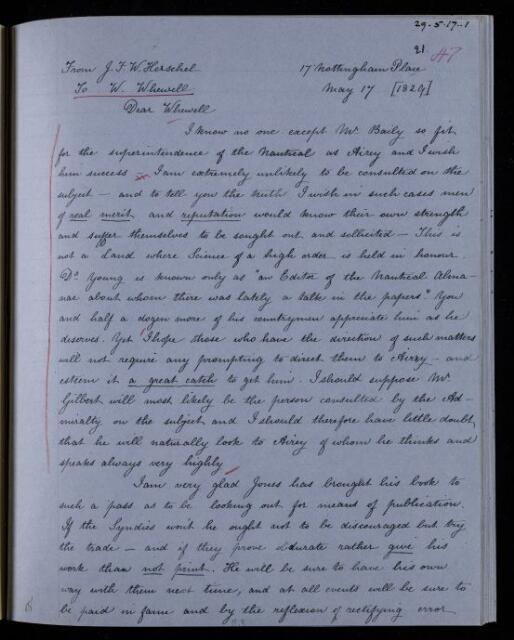 29-5-17-1
21 47
From J. F. W. Herschel 17 Nottingham Place
To W. Whewell May 17 [1829]
Dear Whewell
I know no one except Mr. Baily so fit
for the superintendence of the Nautical as Airey and I wish
him success I am extremely unlikely to be consulted on the
subject — and to tell you the truth I wish in such cases men
of real merit and reputation would know their own strength
and suffer themselves to be sought out and sollicited — This is
not a Land where Science of a high order is held in honour.
Dr Young is known only as "an Editor of the Nautical Alma-
nac about whom there was lately a talk in the papers." You
and half a dozen more of his countrymen appreciate him as he
deserves. Yet I hope those who have the direction of such matters
will not require any prompting to direct them to Airey — and
esteem it a great catch to get him. I should suppose Mr.
Gilbert will most likely be the person consulted by the Ad-
miralty on the subject and I should therefore have little doubt
that he will naturally look to Airey of whom he thinks and
speaks always very highly
I am very glad Jones has brought his book to
such a pass as to be looking out for means of publication.
If the Syndics wont he ought not to be discouraged but try
the trade — and if they prove obdurate rather give his
work than not print. He will be sure to have his own
way with them next time, and at all events will be sure to
be paid in fame and by the reflexion of rectifying error